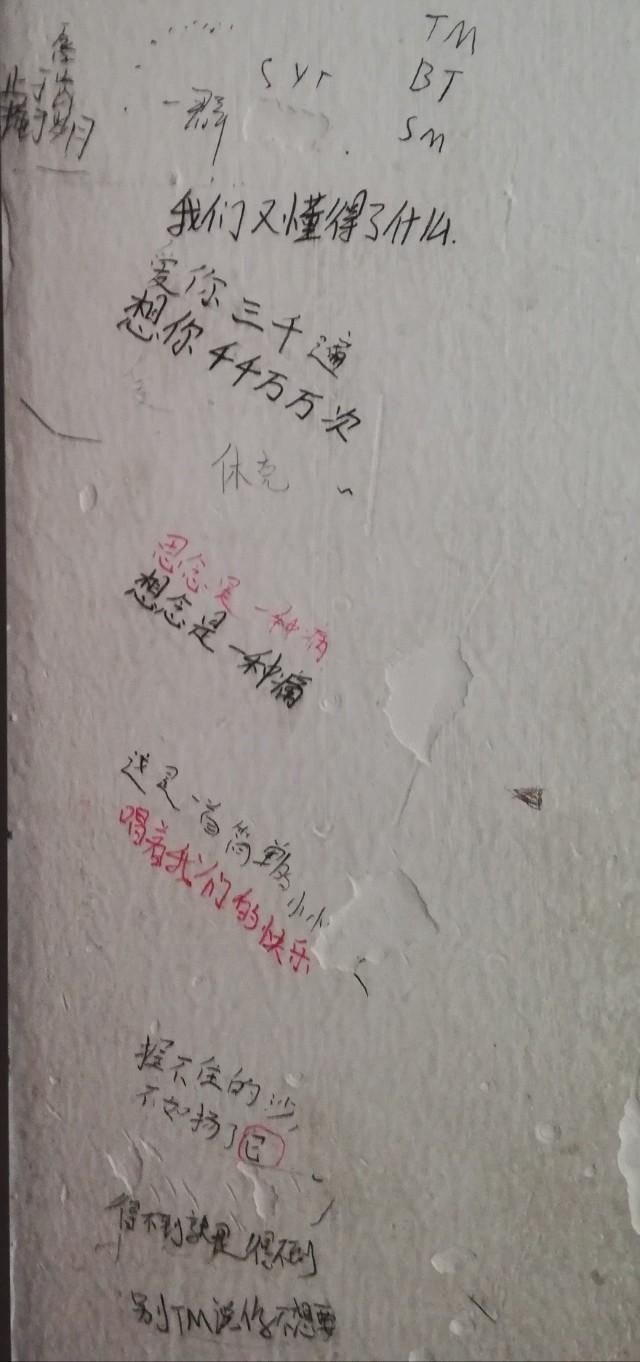 TM
SYT BT
一群 SM
我们又懂得了什么.
爱你三千遍
想你千千万万次
休克
思念是一种病
想念是一种痛
这是一首简单的小小
唱着我们的快乐
握不住的沙,
不如扬了它
得不到就是得不到
别TM说你不想要